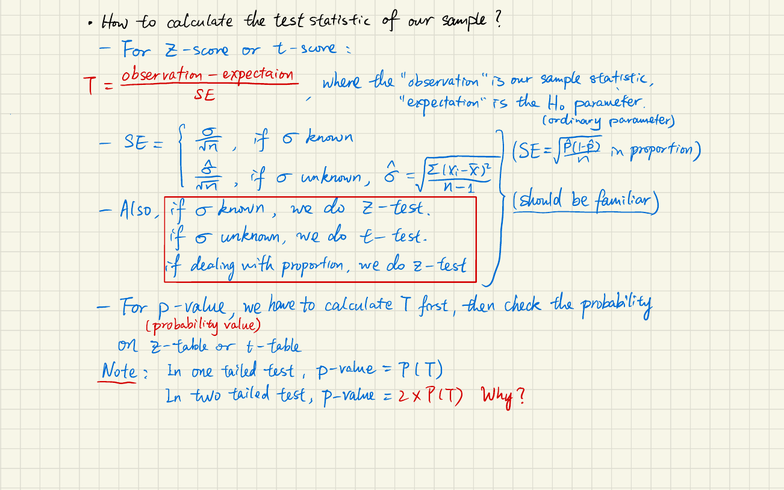 • How to calculate the test statistic of our sample?
– For z-score or t-score:
T = (observation – expectaion)/SE , where the "observation" is our sample statistic,
"expectation" is the H₀ parameter.
(ordinary parameter)
– SE = { σ/√n , if σ known
σ̂/√n , if σ unknown, σ̂ = √(Σ(xᵢ–x̄)²/(n–1))
(SE = √(p̂(1–p̂)/n) in proportion)
(should be familiar)
– Also, if σ known, we do z-test.
if σ unknown, we do t-test.
if dealing with proportion, we do z-test
– For p-value, we have to calculate T first, then check the probability
(probability value)
on z-table or t-table
Note: In one tailed test, p-value = P(T)
In two tailed test, p-value = 2×P(T) Why?